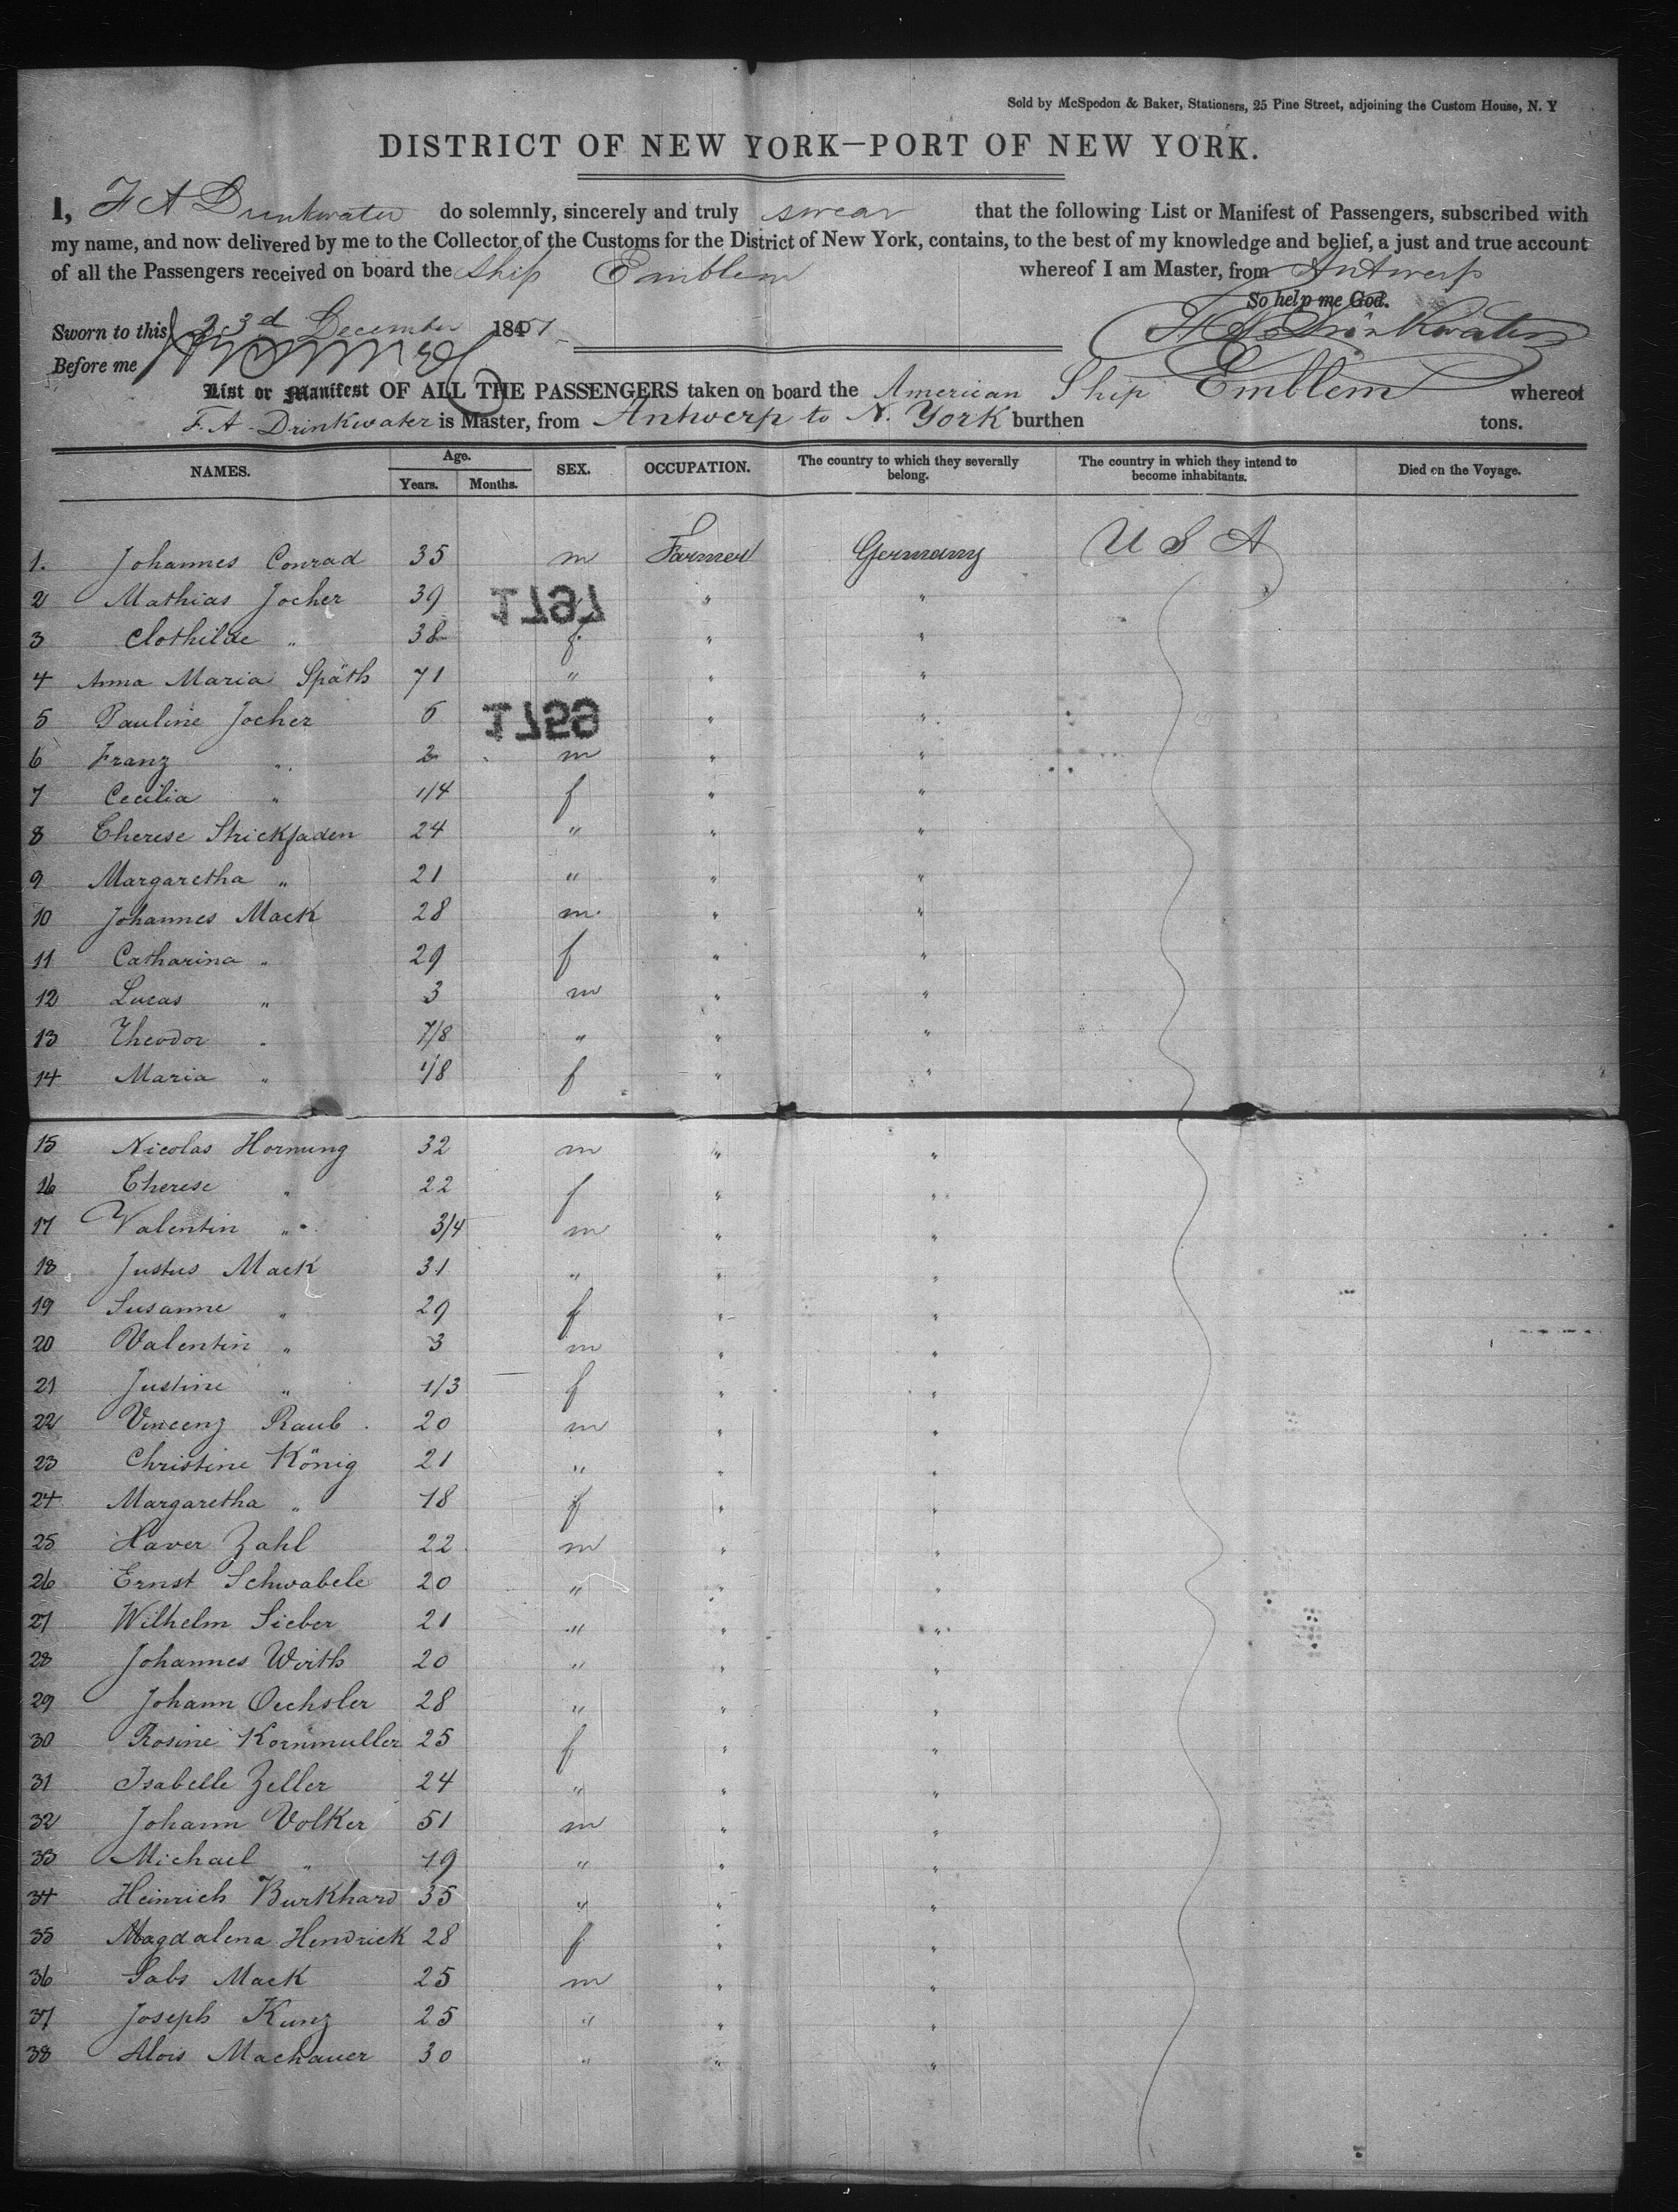 Sold by McSpedon & Baker, Stationers, 25 Pine Street, adjoining the Custom House, N. Y
DISTRICT OF NEW YORK—PORT OF NEW YORK.
I, F A Drinkwater do solemnly, sincerely and truly swear that the following List or Manifest of Passengers, subscribed with
my name, and now delivered by me to the Collector of the Customs for the District of New York, contains, to the best of my knowledge and belief, a just and true account
of all the Passengers received on board the Ship Emblem whereof I am Master, from Antwerp
So help me God.
Sworn to this 23d December 1851 F A Drinkwater
Before me
List or Manifest OF ALL THE PASSENGERS taken on board the American Ship Emblem whereof
F. A. Drinkwater is Master, from Antwerp to N. York burthen tons.
NAMES. Age. Years. Months. SEX. OCCUPATION. The country to which they severally belong. The country in which they intend to become inhabitants. Died on the Voyage.
1. Johannes Conrad 35 m Farmer Germany U S A
2 Mathias Jocher 39 1797 " "
3 Clothilde " 38 f " "
4 Anna Maria Späth 71 " " "
5 Pauline Jocher 6 1759 " "
6 Franz " 2 m " "
7 Cecilia " 1/4 f " "
8 Therese Strickfaden 24 " " "
9 Margaretha " 21 " " "
10 Johannes Mack 28 m. " "
11 Catharina " 29 f " "
12 Lucas " 3 m " "
13 Theodor " 7/8 " " "
14 Maria " 1/8 f " "
15 Nicolas Hornung 32 m " "
16 Therese " 22 f " "
17 Valentin " 3/4 m " "
18 Justus Mack 31 " " "
19 Susanne " 29 f " "
20 Valentin " 3 m " "
21 Justine " 1/3 f " "
22 Vincenz Raub 20 m " "
23 Christine König 21 " " "
24 Margaretha " 18 f " "
25 Xaver Zahl 22 m " "
26 Ernst Schwabele 20 " " "
27 Wilhelm Sieber 21 " " "
28 Johannes Wirth 20 " " "
29 Johann Oechsler 28 " " "
30 Rosine Kornmuller 25 f " "
31 Isabelle Zeller 24 " " "
32 Johann Volker 51 m " "
33 Michael " 19 " " "
34 Heinrich Burkhard 35 " " "
35 Magdalena Hendrick 28 f " "
36 Sabs Mack 25 m " "
37 Joseph Kunz 25 " " "
38 Alois Machauer 30 " " "